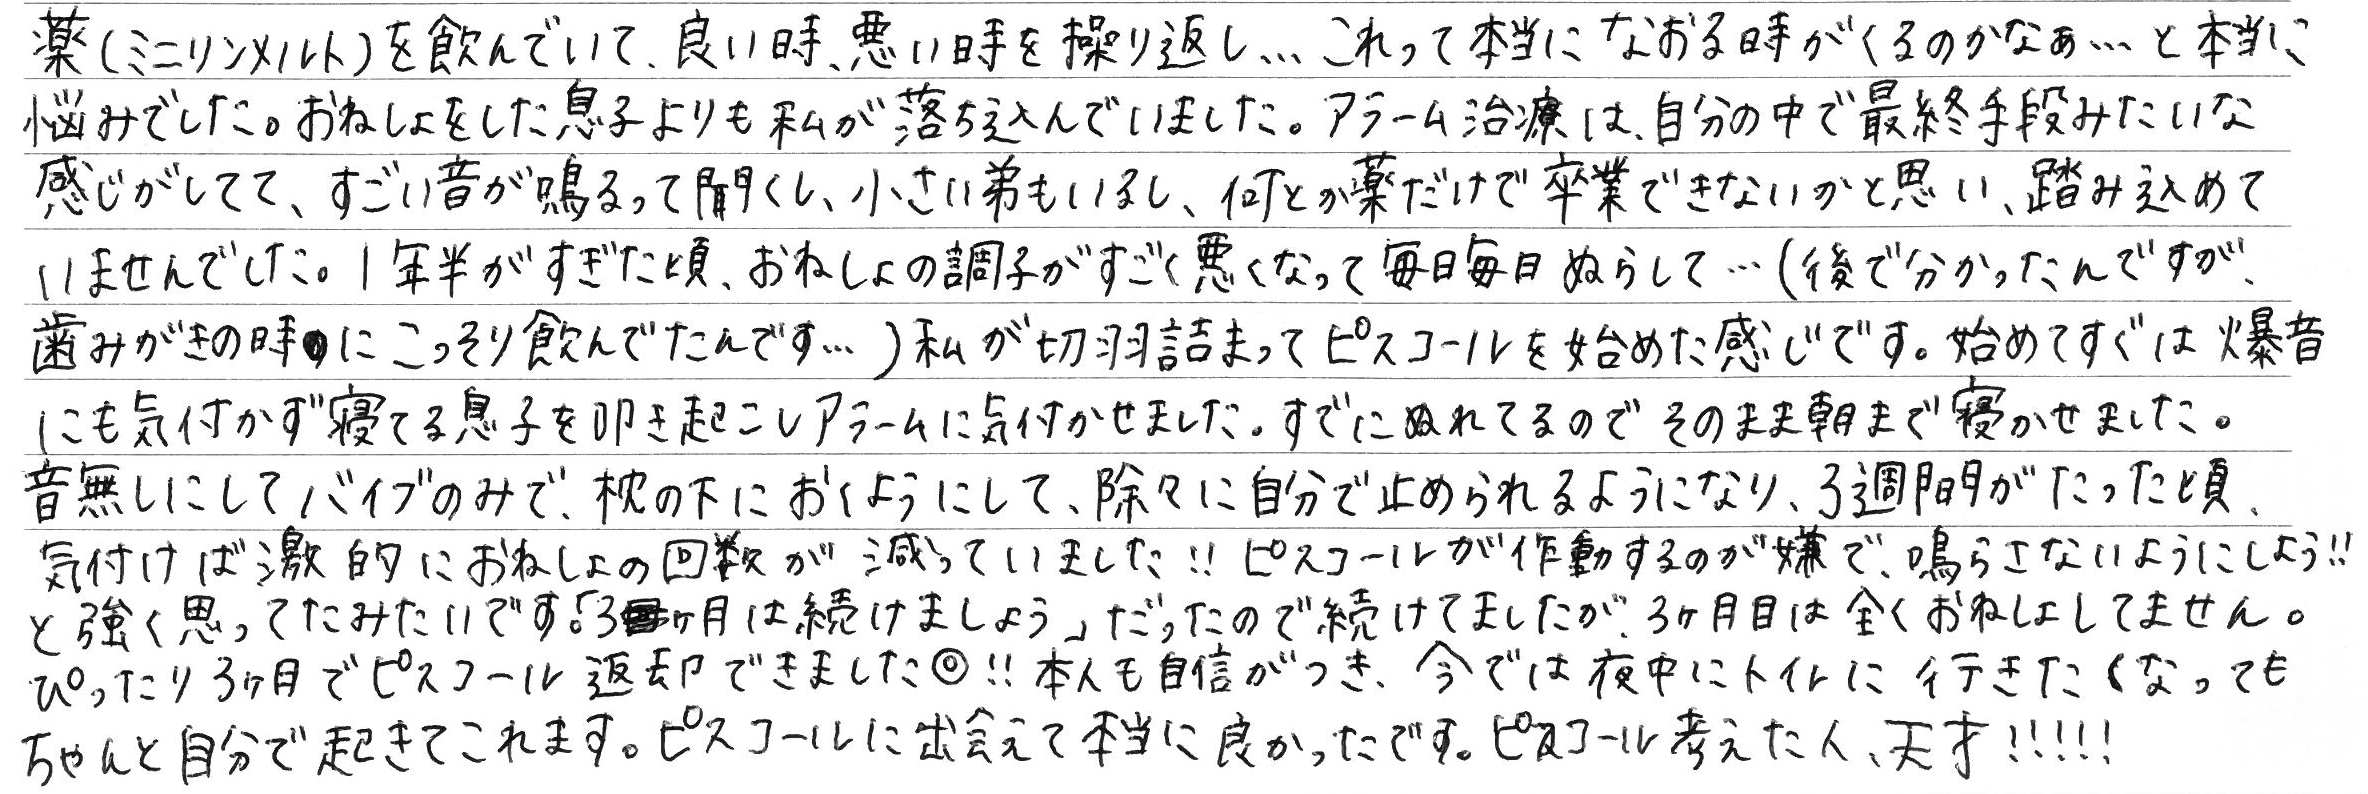 薬(ミニリンメルト)を飲んでいて、良い時、悪い時を繰り返し…これって本当になおる時がくるのかなぁ…と本当に、
悩みでした。おねしょをした息子よりも私が落ち込んでいました。アラーム治療は、自分の中で最終手段みたいな
感じがしてて、すごい音が鳴るって聞くし、小さい弟もいるし、何とか薬だけで卒業できないかと思い、踏み込めて
いませんでした。1年半がすぎた頃、おねしょの調子がすごく悪くなって毎日毎日ぬらして…(後で分かったんですが、
歯みがきの時にこっそり飲んでたんです…)私が切羽詰まってピスコールを始めた感じです。始めてすぐは爆音
にも気付かず寝てる息子を叩き起こしアラームに気付かせました。すでにぬれてるのでそのまま朝まで寝かせました。
音無しにしてバイブのみで、枕の下におくようにして、除々に自分で止められるようになり、3週間がたった頃、
気付けば激的におねしょの回数が減っていました!! ピスコールが作動するのが嫌で、鳴らさないようにしよう!!
と強く思ってたみたいです。「3ヶ月は続けましょう」だったので続けてましたが、3ヶ月目は全くおねしょしてません。
ぴったり3ヶ月でピスコール返却できました◎!! 本人も自信がつき、今では夜中にトイレに行きたくなっても
ちゃんと自分で起きてこれます。ピスコールに出会えて本当に良かったです。ピスコール考えた人、天才!!!!!